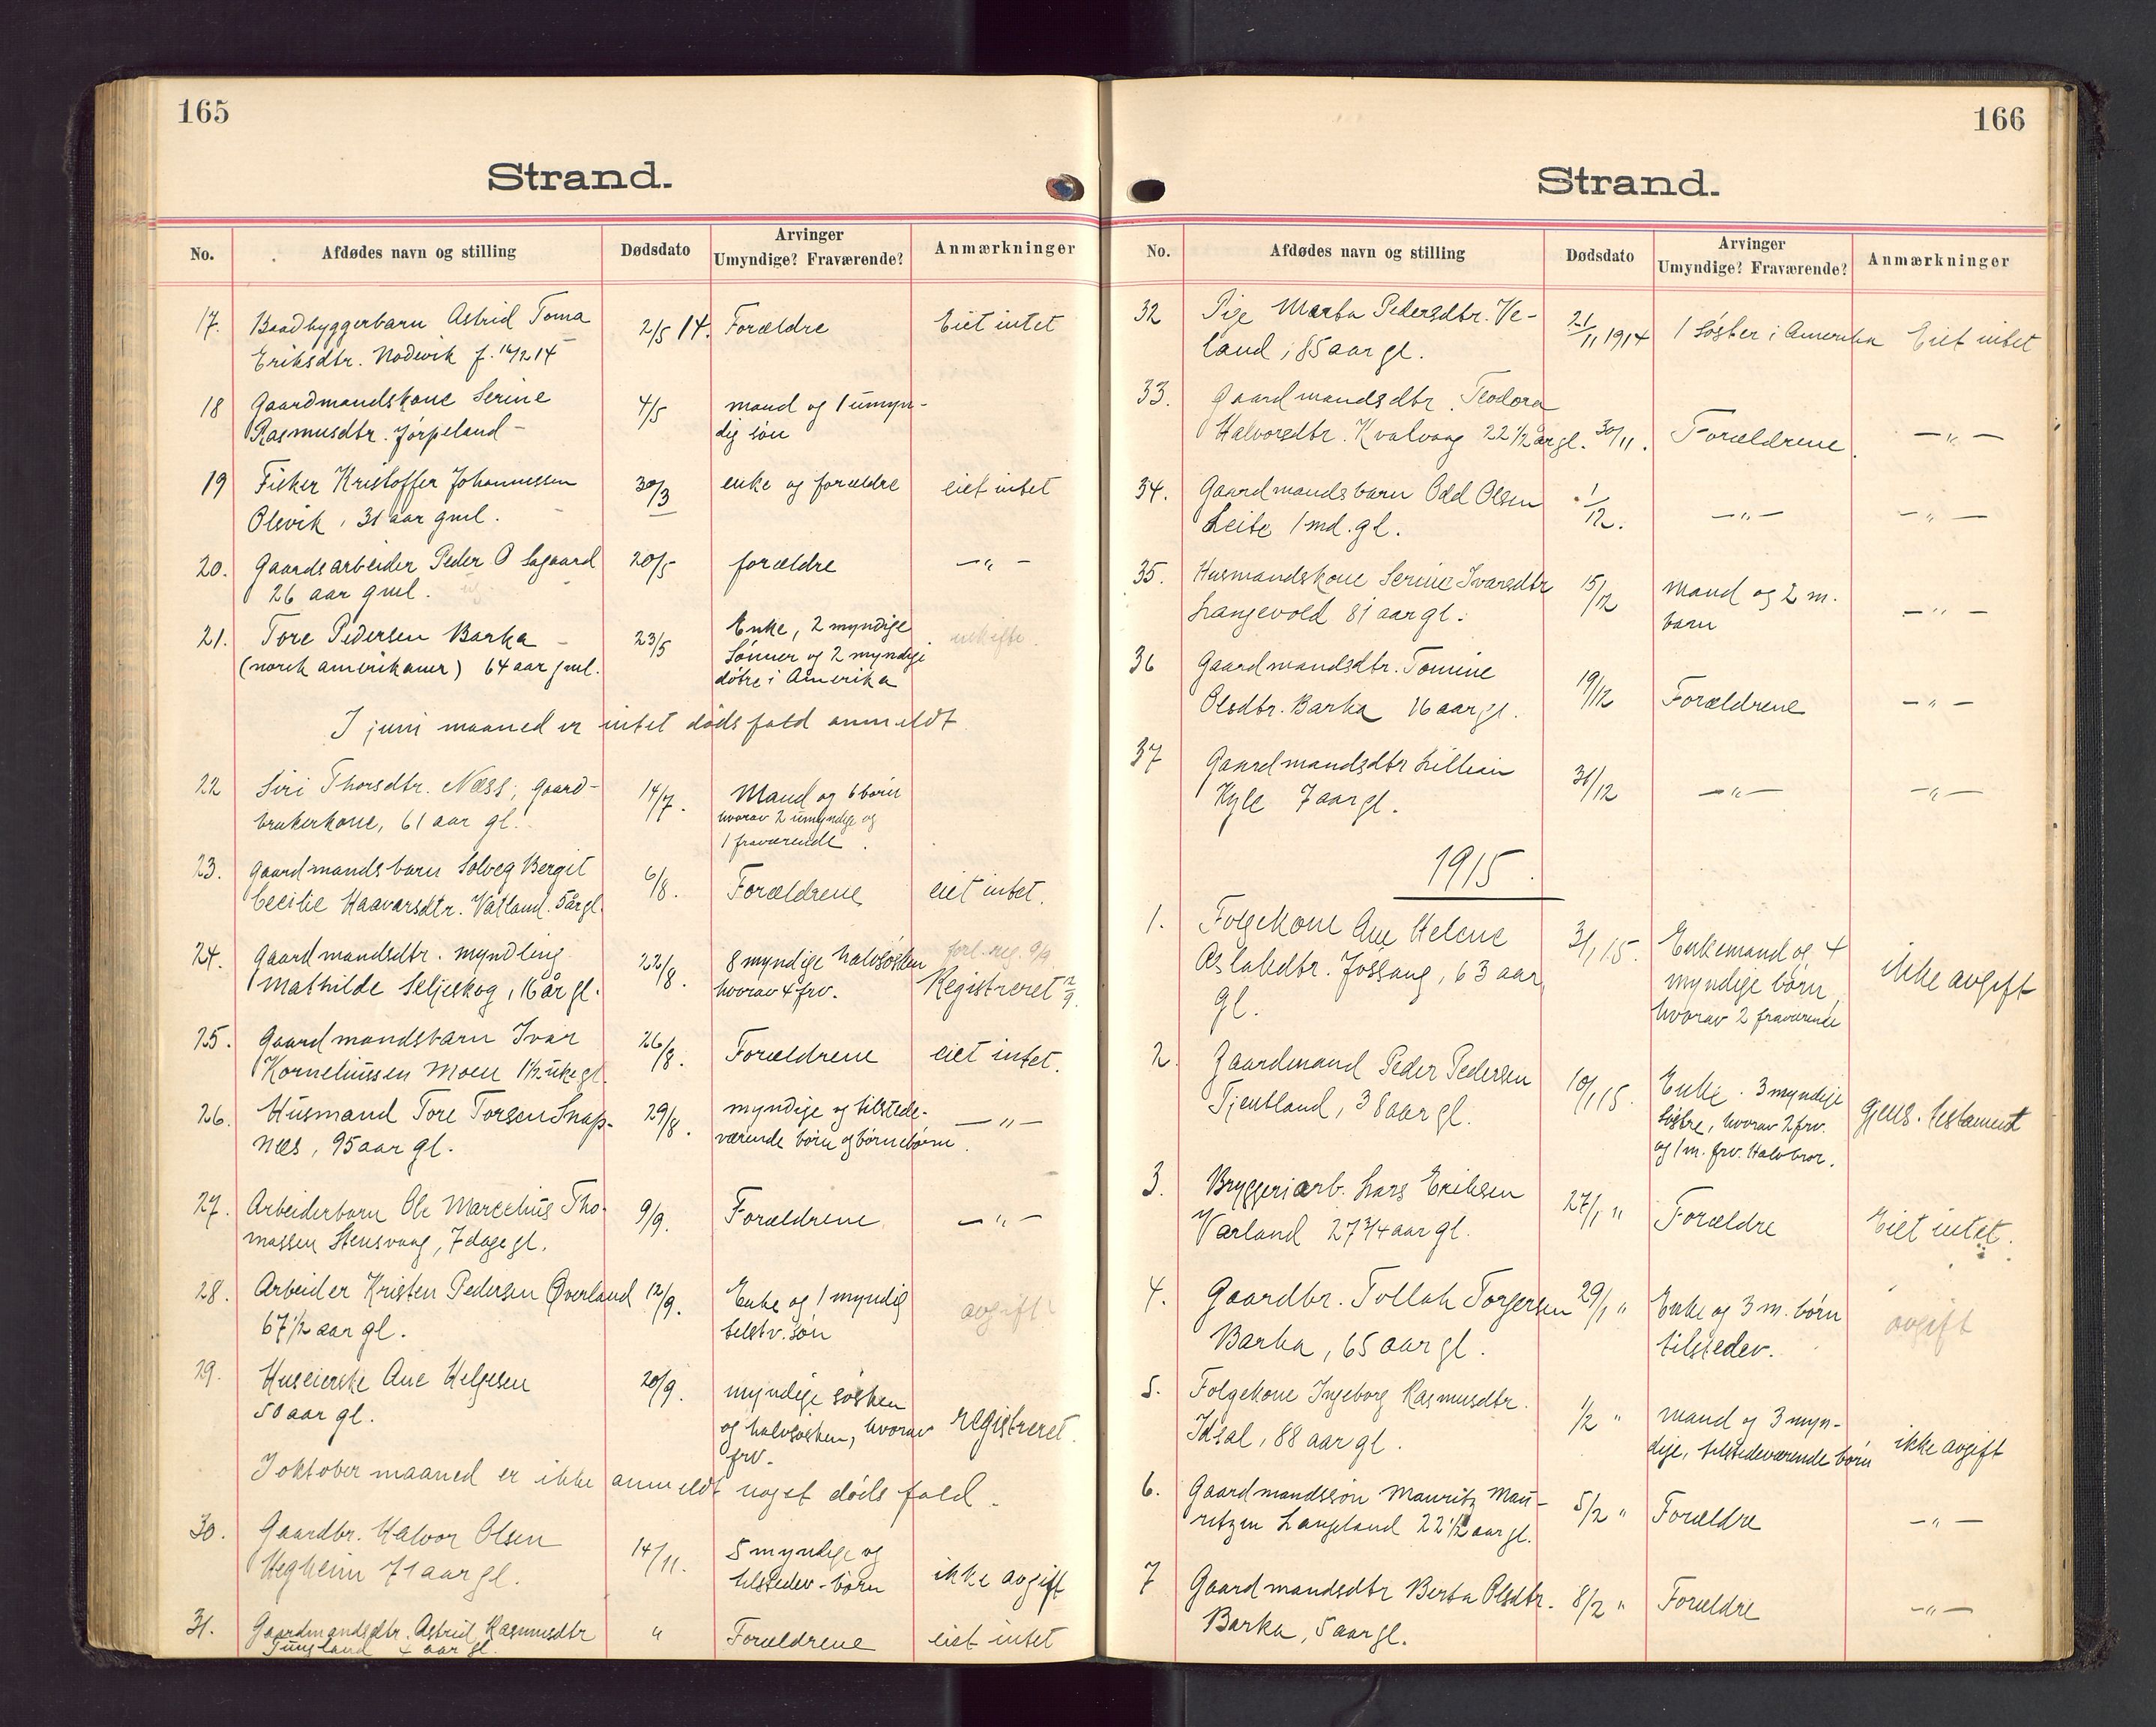 165
Strand.
No. Afdødes navn og stilling Dødsdato Arvinger Umyndige? Fraværende? Anmærkninger
17. Baadbyggerbarn Astrid Toma 2/5 14. Forældre Eiet intet
Eriksdtr. Nodevik f. 14/2 14
18 Gaardmandskone Serine 4/5 mand og 1 umyn-
Rasmusdtr. Jørpeland - dig søn
19 Fisker Kristoffer Johannessen 30/3 enke og forældre eiet intet
Olevik, 31 aar gml.
20. Gaardsarbeider Peder O Sagaard 20/5 forældre -"-
26 aar gml.
21. Tore Pedersen Barka - 23/5 Enke, 2 myndige
(norsk amerikaner) 64 aar gml. Sønner og 2 myndige
døtre i Amerika
I juni maaned er intet dødsfald anmeldt
22 Siri Thorsdtr. Næss, gaard- 14/7. Mand og 6 børn
brukerkone, 61 aar gl. hvorav 2 umyndige og
1 fraværende.
23. Gaardmandsbarn Solveg Bergit 6/8. Forældrene eiet intet.
Cecilie Haavarsdtr. Vatland. 5 år gl.
24. Gaardmandsdtr. myndling 22/8. 8 myndige halvsøsken forl. reg. 9/9
Mathilde Seljeskog, 16 år gl. hvorav 4 frv. Registreret 12/9.
25. Gaardmandsbarn Ivar 26/8. Forældrene eiet intet.
Korneliussen Moen 1½ uke gl.
26. Husmand Tore Torsen Snap- 29/8. myndige og tilstede- -"-
næs, 95 aar gl. værende børn og børnebørn.
27. Arbeiderbarn Ole Marcelius Tho- 9/9. Forældrene -"-
massen Stensvaag, 7 dage gl.
28. Arbeider Kristen Pedersen Øverland 12/9. Enke og 1 myndig avgift
67½ aar gl. tilstv. søn
29. Huseierske Ane Helgesen 20/9. myndige søsken
50 aar gl. og halvsøsken, hvorav registreret.
frv.
I oktober maaned er ikke anmeldt noget dødsfald.
30. Gaardbr. Halvor Olsen 14/11. 5 myndige og
Hegheim 71 aar gl. tilstedev. børn ikke avgift
31. Gaardmandsdtr. Astrid Rasmusdtr " Forældrene eiet intet
Tungland 4 aar gl.
166
Strand.
No. Afdødes navn og stilling Dødsdato Arvinger Umyndige? Fraværende? Anmærkninger
32 Pige Marta Pedersdtr. Ve- 21/11 1914 1 søster i Amerika Eiet intet
land, 85 aar gl.
33. Gaardmandsdtr. Teodora
Halvorsdtr. Kvalvaag 22½ år gl. 30/11. Forældrene. -"-
34. Gaardmandsbarn Odd Olsen 1/12. -"- -"-
Leite 1 md. gl.
35. Husmandskone Serine Ivarsdtr 15/12 mand og 2 m. -"-
Langevold 81 aar gl. barn
36 Gaardmandsdtr. Tomine 19/12 Forældrene -"-
Olsdtr. Barka 16 aar gl.
37 Gaardmandsdtr Lillian 31/12 -"- -"-
Hyle 7 aar gl.
1915.
1. Folgekone Ane Helene 3/1 15. Enkemand og 4 ikke avgift
Aslakdtr. Jøssang, 63 aar myndige børn,
gl. hvorav 2 fraværende
2. Gaardmand Peder Pedersen 10/1 15. Enke. 3 myndige gjens. testament
Tjentland, 38 aar gl. søstre, hvorav 2 frv.
og 1 m. frv. Halvbror.
3. Bryggeriarb. Lars Eriksen 27/1 " Forældre Eiet intet.
Varland 27 3/4 aar gl.
4. Gaardbr. Tollak Torgersen 29/1 " Enke og 3 m. børn avgift
Barka, 65 aar gl. tilstedev.
5. Folgekone Ingeborg Rasmusdtr. 1/2 " mand og 3 myn-
Idsal, 88 aar gl. dige, tilstedeværende børn ikke avgift
6. Gaardmandssøn Mauritz Mau- 5/2 " Forældre -"-
ritzen Langeland 22½ aar gl.
7 Gaardmandsdtr Berta Olsdtr. 8/2 " Forældre -"-
Barka, 5 aar gl.